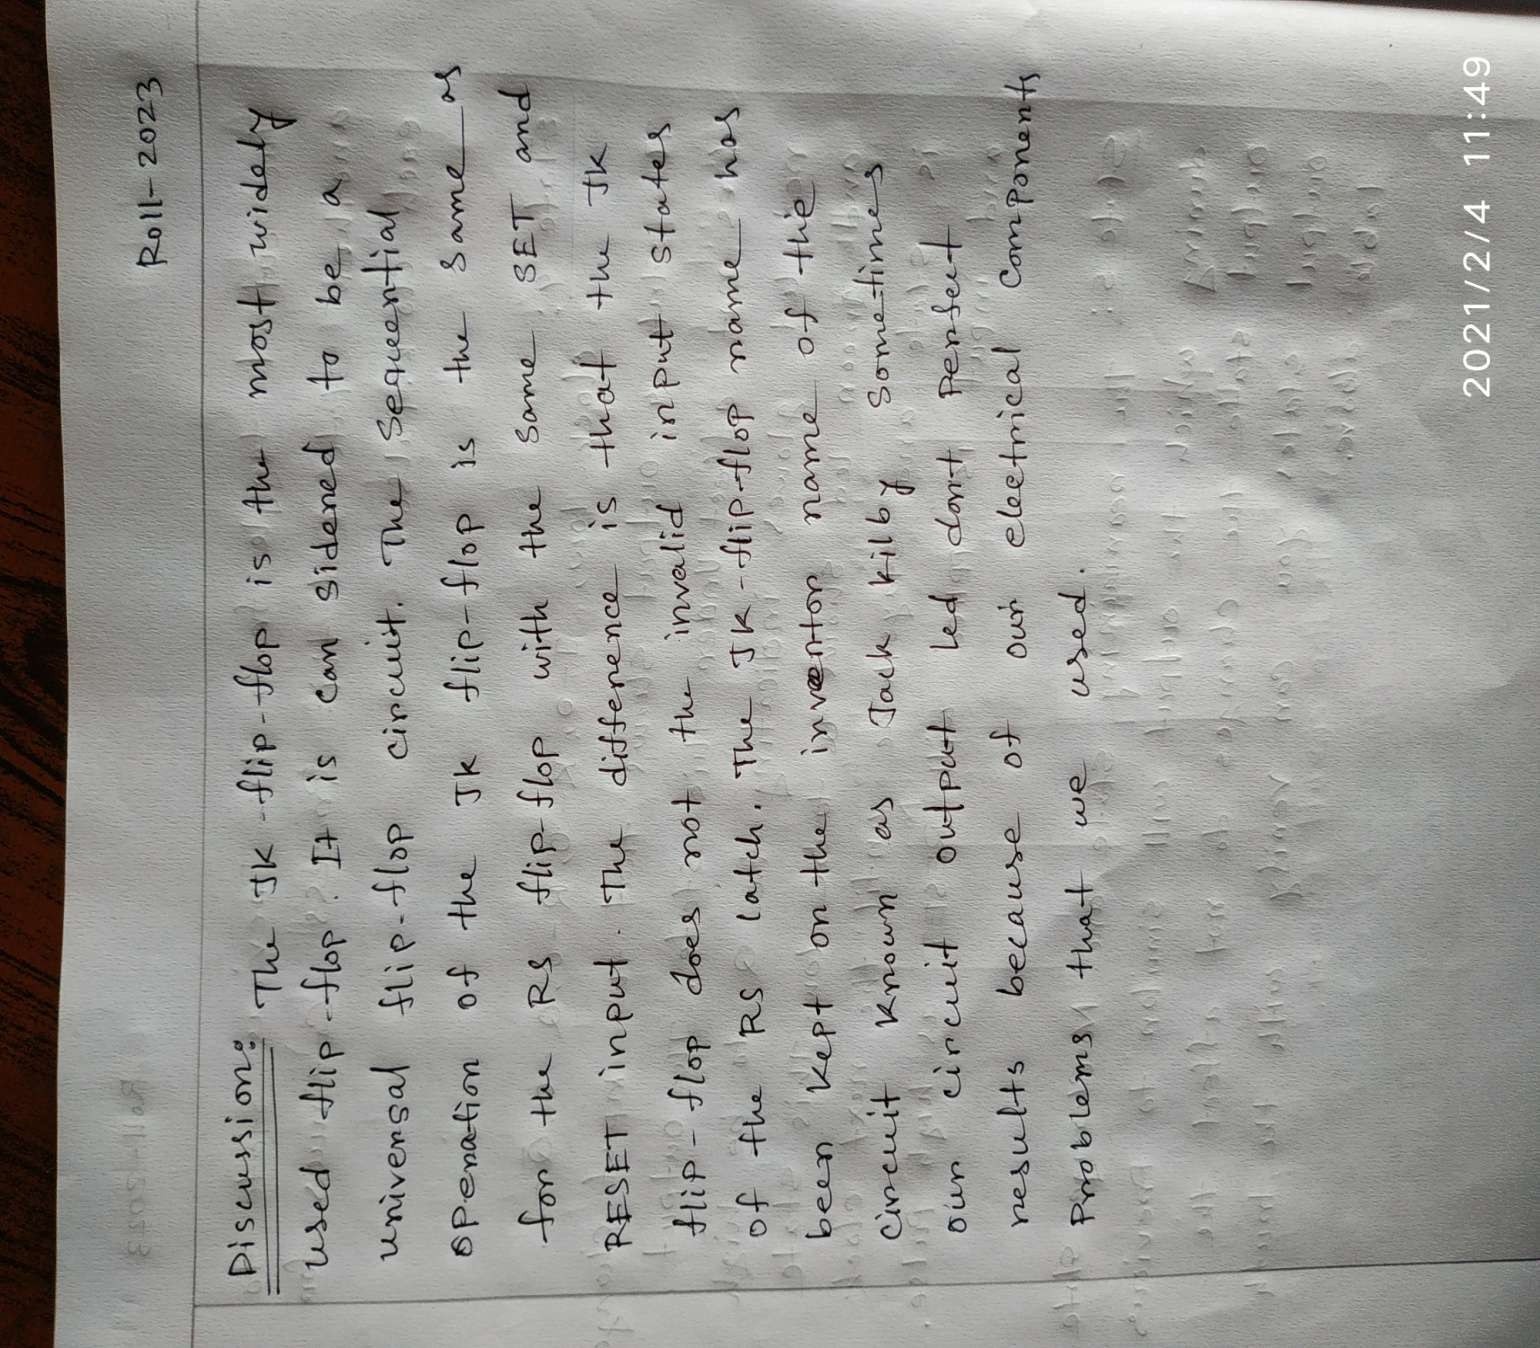 Roll-2023
Discussion: The JK flip-flop is the most widely
used flip-flop. It is can sidered to be a
universal flip-flop circuit. The Sequential
operation of the JK flip-flop is the same as
for the RS flip-flop with the same SET and
RESET input. The difference is that the JK
flip-flop does not the invalid input states
of the RS latch. The JK-flip-flop name has
been kept on the inventor name of the
circuit known as Jack kilby sometimes
our circuit output led don't perfect
results because of our electrical components
Problems that we used.
2021/2/4 11:49